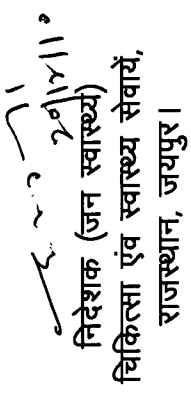 निदेशक (जन स्वास्थ्य)
चिकित्सा एंव स्वास्थ्य सेवायें,
राजस्थान, जयपुर।